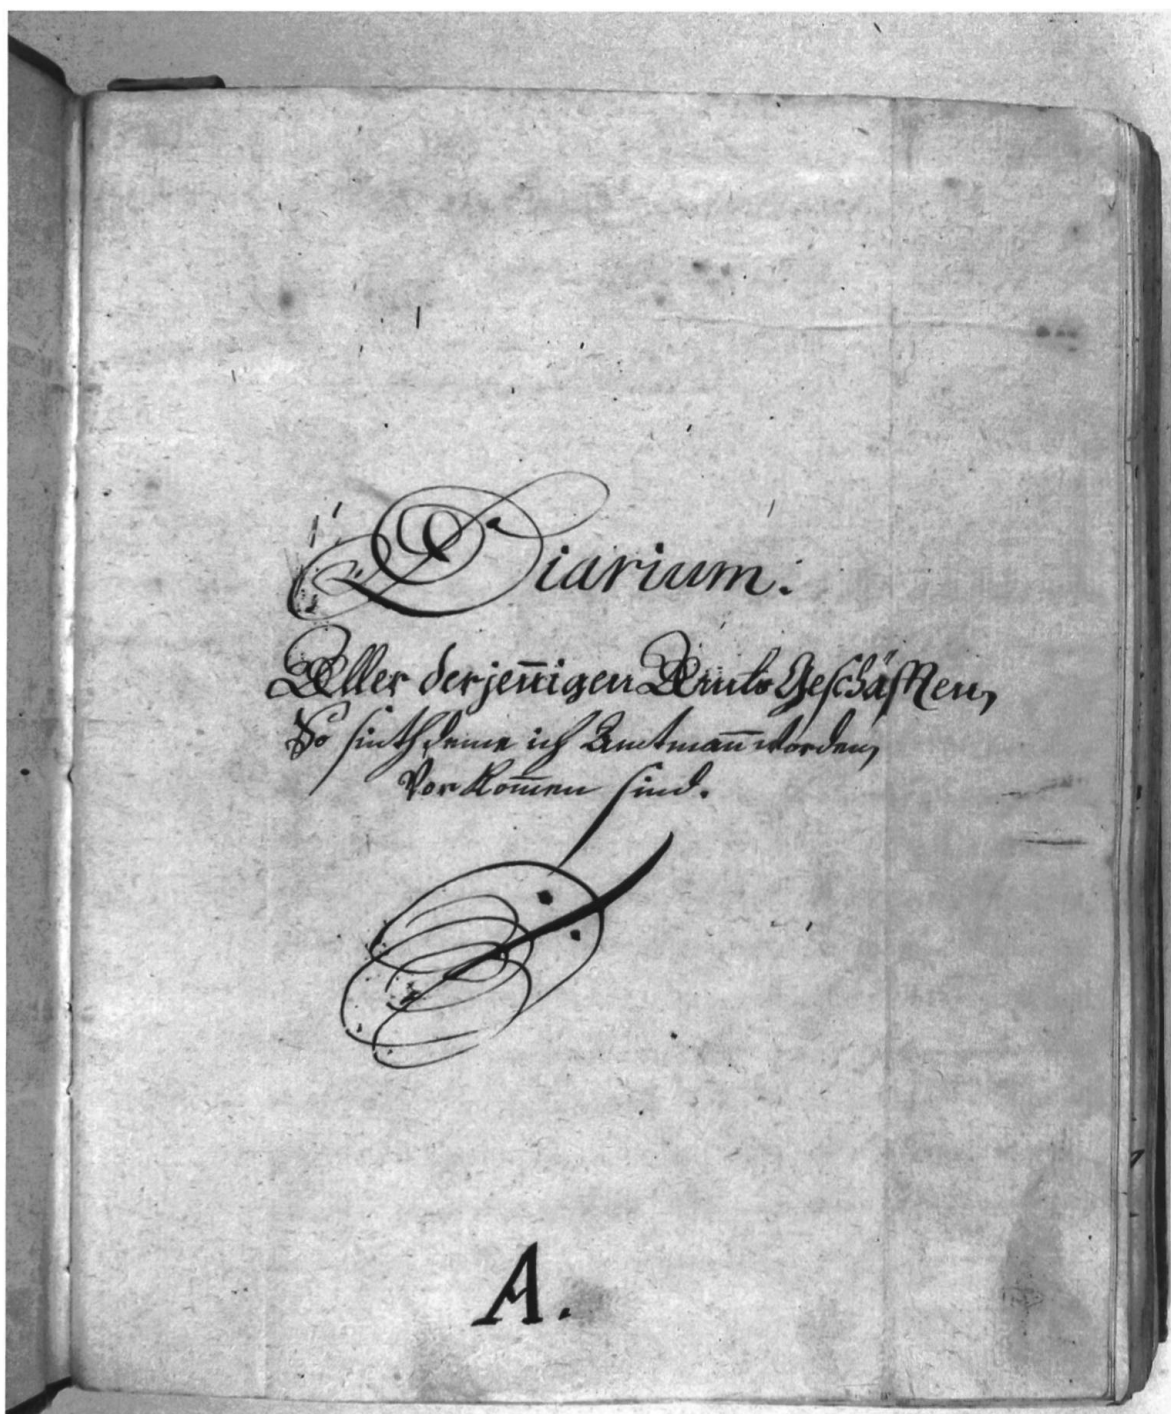 Diarium.
Aller derjen̄igen Ambts Geschäfften,
So sinthdeme ich Amtman̄ worden,
Vorkom̄en sind.
A.